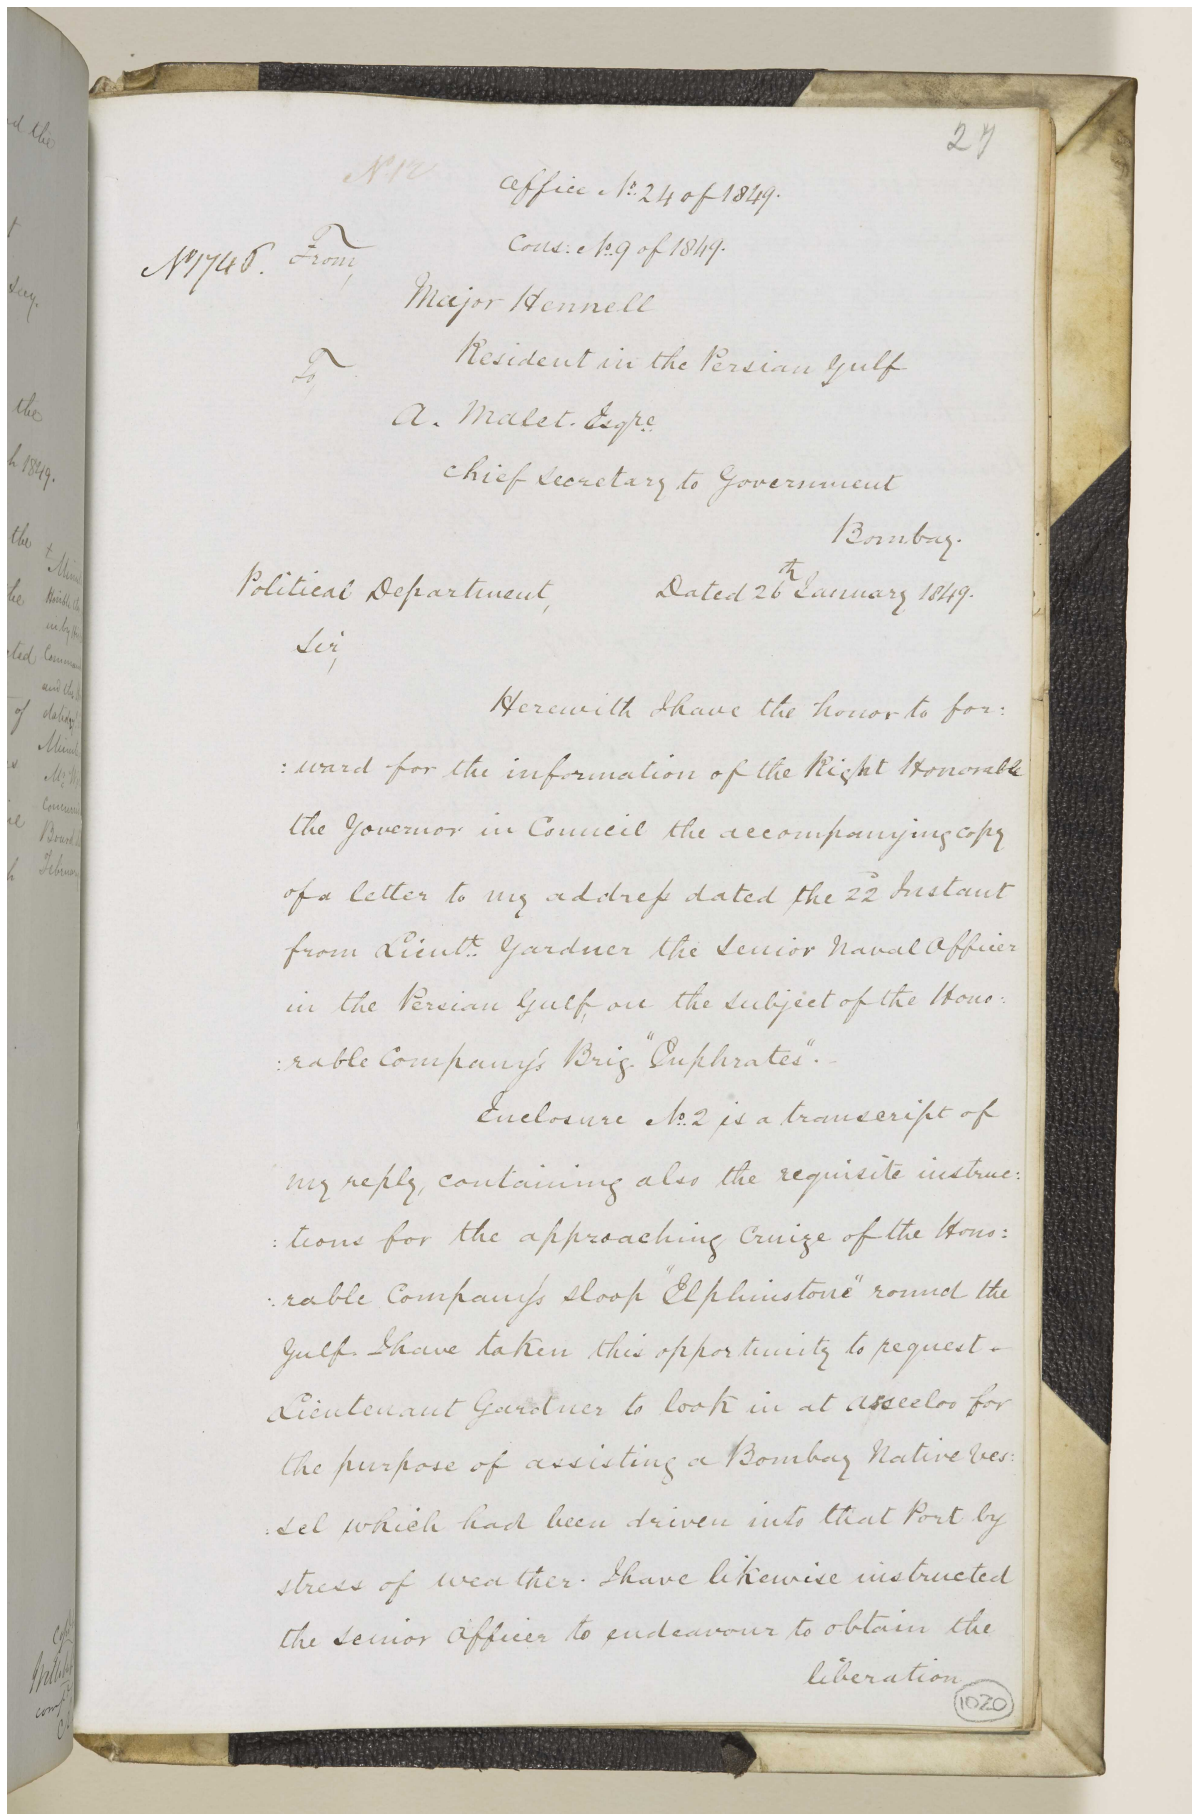 27
No 12
Office No. 24 of 1849.
Cons: No. 9 of 1849.
No 1746. From,
Major Hennell
Resident in the Persian Gulf
To,
A. Malet. Esqre.
Chief Secretary to Government
Bombay.
Political Department, Dated 26th January 1849.
Sir,
Herewith I have the honor to for:
:ward for the information of the Right Honorable
the Governor in Council the accompanying copy
of a letter to my address dated the 22d Instant
from Lieutt. Gardner the Senior Naval Officer
in the Persian Gulf, on the subject of the Hono:
:rable Company's Brig "Euphrates".
Enclosure No. 2 is a transcript of
my reply, containing also the requisite instruc:
:tions for the approaching Cruize of the Hono:
:rable Company's Sloop "Elphinstone" round the
Gulf. I have taken this opportunity to request
Lieutenant Gardner to look in at Asseeloo for
the purpose of assisting a Bombay Native Ves:
:sel which had been driven into that Port by
stress of weather. I have likewise instructed
the Senior Officer to endeavour to obtain the
liberation
1020
the
the
1849.
the
of